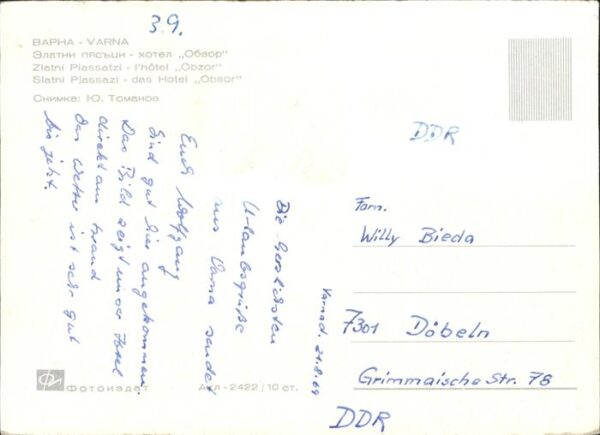 3.9.
ВАРНА - VARNA
Златни пясъци - хотел „Обзор"
Zlatni Piassatzi - l'hôtel „Obzor"
Slatni Pjassazi - das Hotel „Obsor"
Снимка: Ю. Томанов
DDR
Varna d. 21.8.69
Die herzlichsten
Urlaubsgrüße
aus Varna sendet
Euch Wolfgang
Sind gut hier angekommen.
Das Bild zeigt unser Hotel
direkt am Strand
das Wetter ist sehr gut
bis jetzt.
Fam.
Willy Bieda
7301 Döbeln
Grimmaische Str. 78
DDR
Фотоиздат
Акл - 2422 / 10 ст.